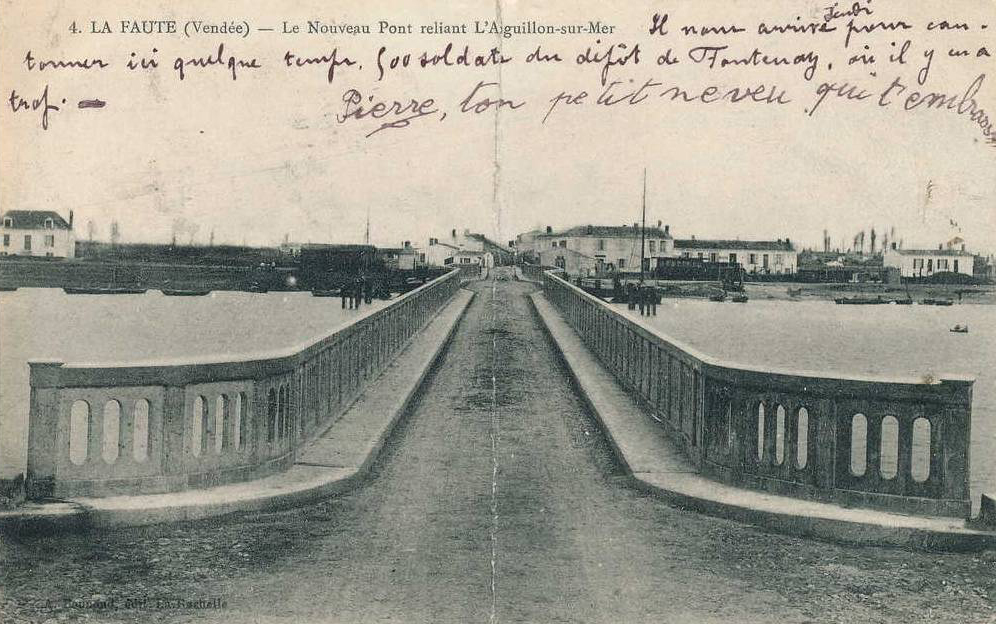 4. LA FAUTE (Vendée) — Le Nouveau Pont reliant L'Aiguillon-sur-Mer
Il nous arrive jeudi pour can-
tonner ici quelque temps, 500 soldats du dépôt de Fontenay, où il y en a
trop. —
Pierre, ton petit neveu qui t'embrasse
édit. La Rochelle